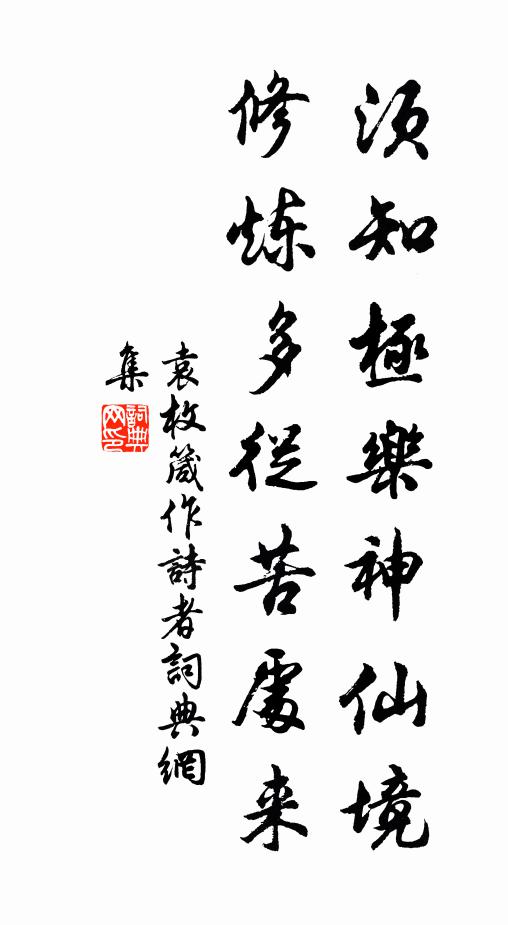 须知極樂神仙境
修炼多從苦處来
袁枚箴作詩者詞典網
集
詞典网印